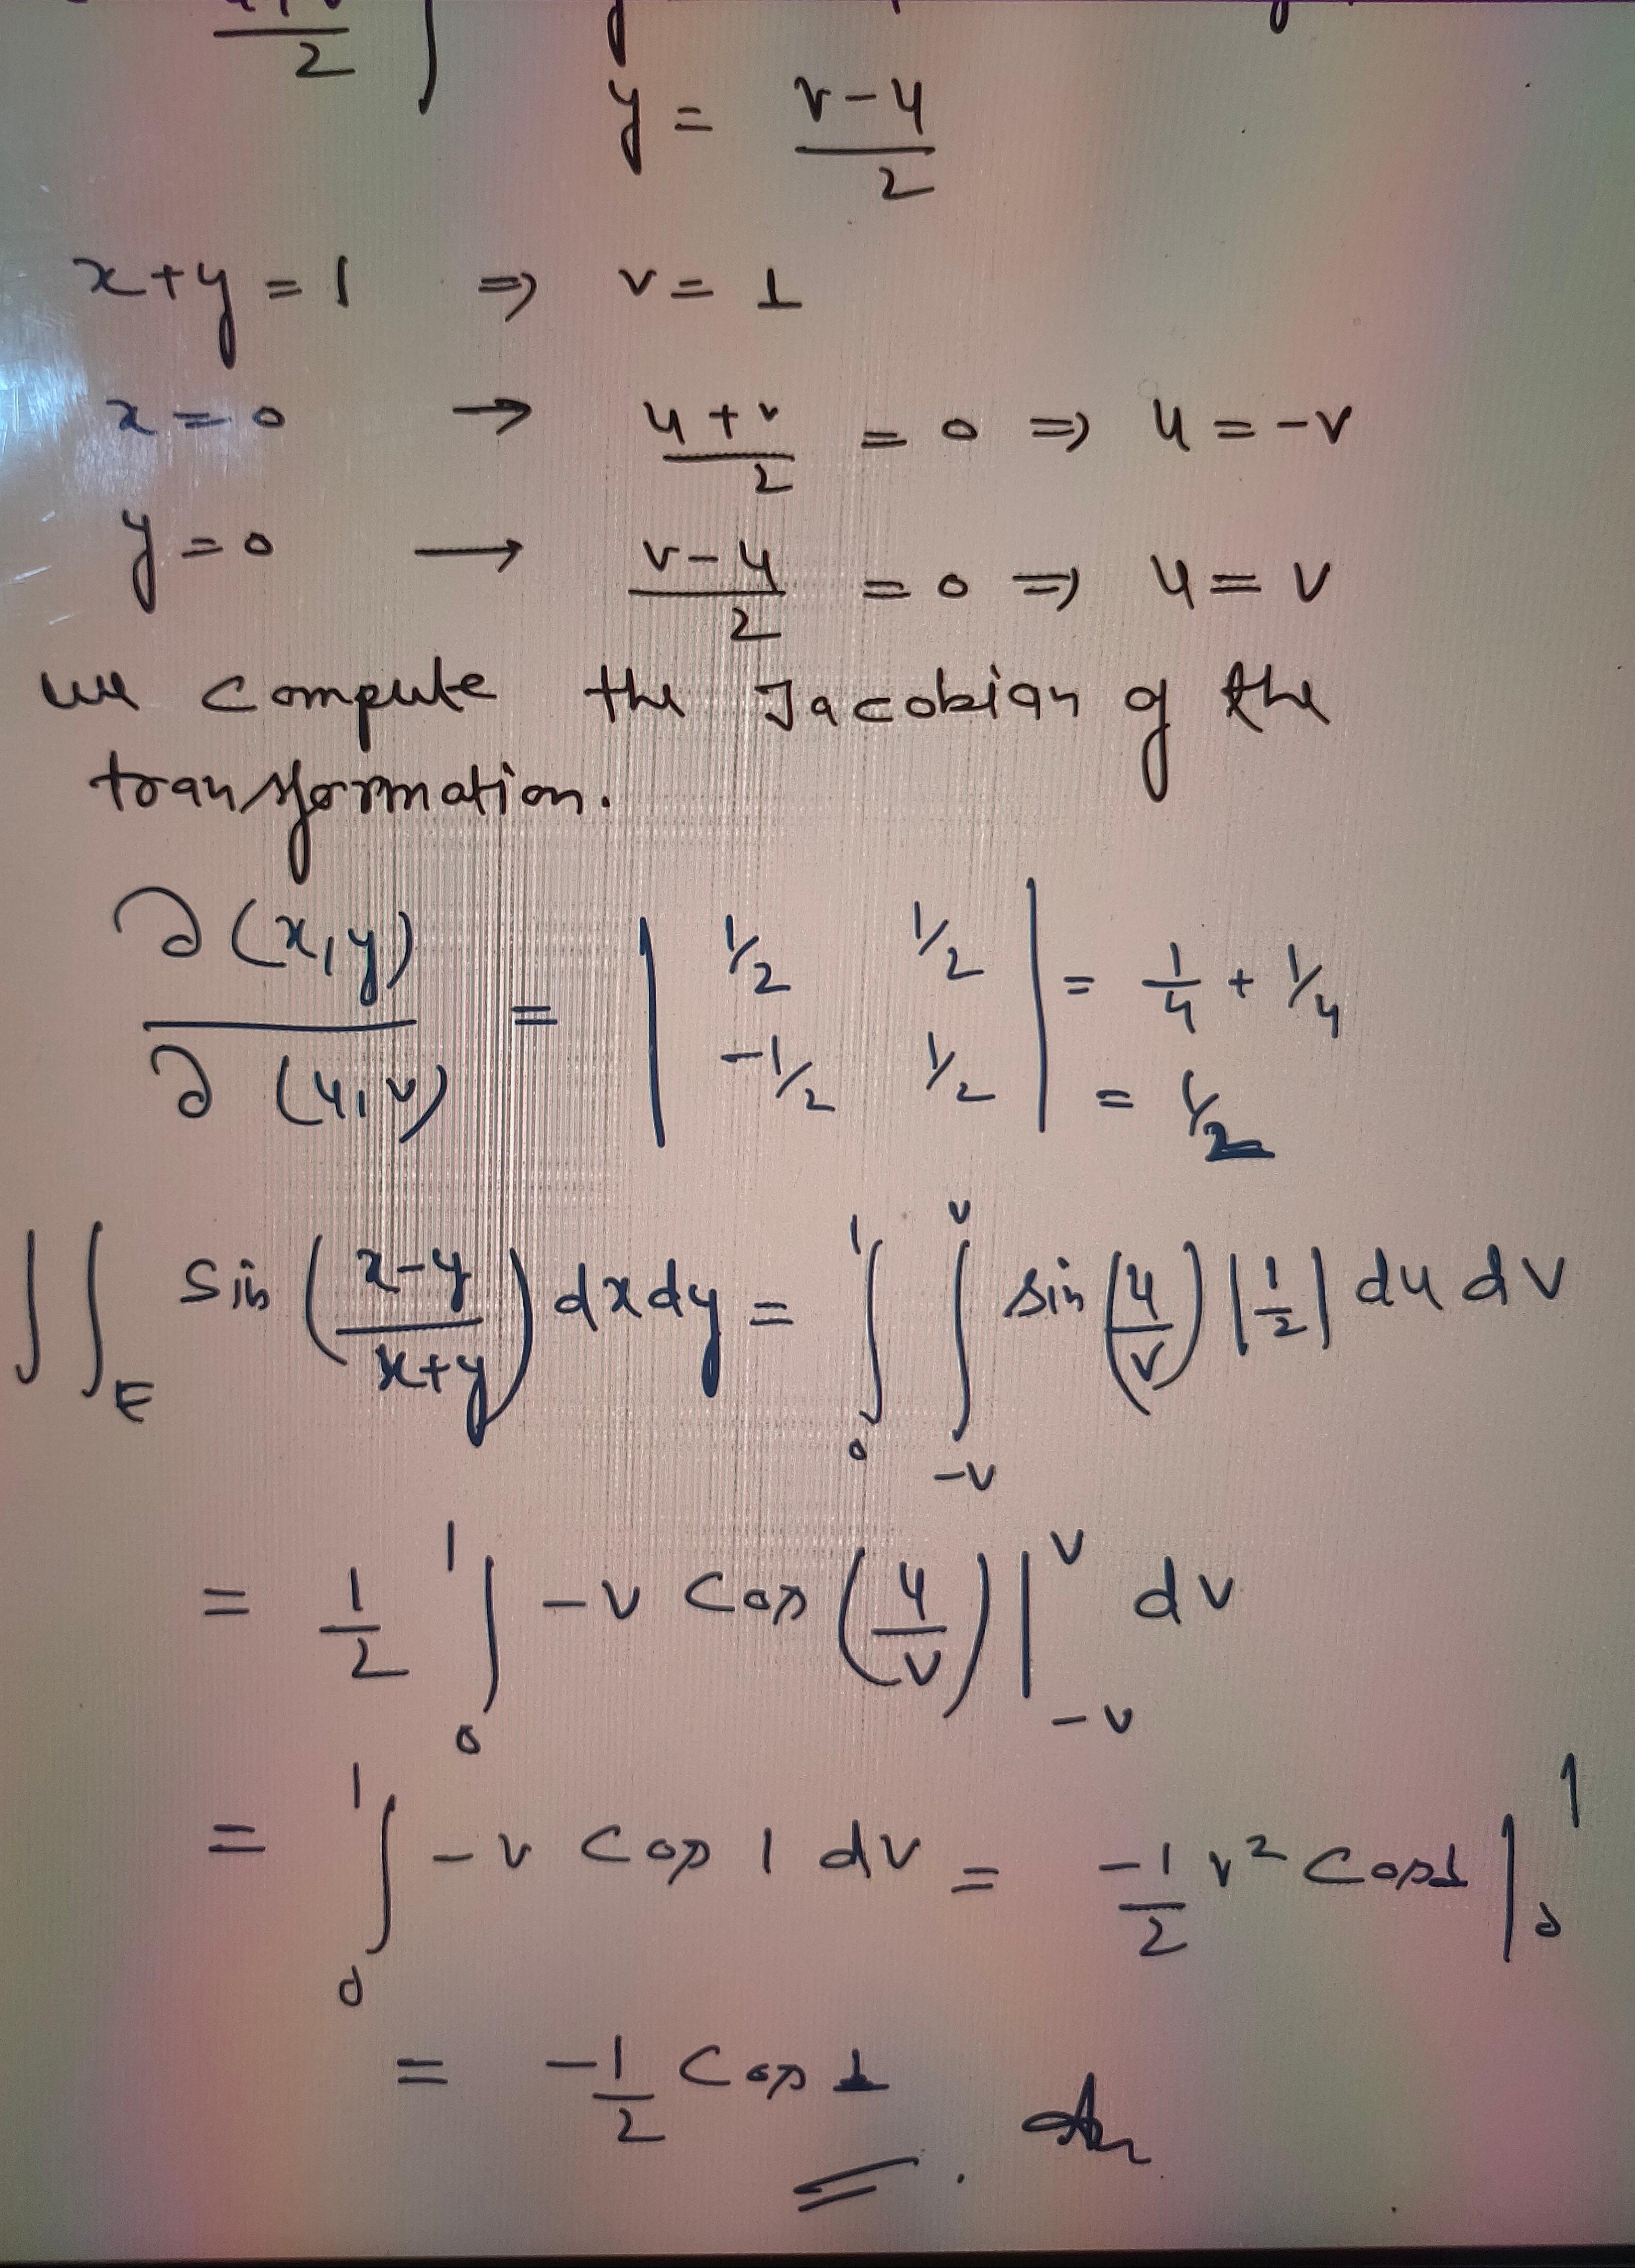 2
y = v-u/2
x+y = 1 ⇒ v = 1
x = 0 → u+v/2 = 0 ⇒ u = -v
y = 0 → v-u/2 = 0 ⇒ u = v
we compute the Jacobian of the
transformation.
∂(x,y)/∂(u,v) = | 1/2 1/2 | = 1/4 + 1/4
| -1/2 1/2 | = 1/2
∫∫_E sin(x-y/x+y) dxdy = ∫_0^1 ∫_-v^v sin(u/v) |1/2| du dv
= 1/2 ∫_0^1 -v cos(u/v) |_-v^v dv
= ∫_0^1 -v cos 1 dv = -1/2 v² cos1 |_0^1
= -1/2 cos 1 . Ans